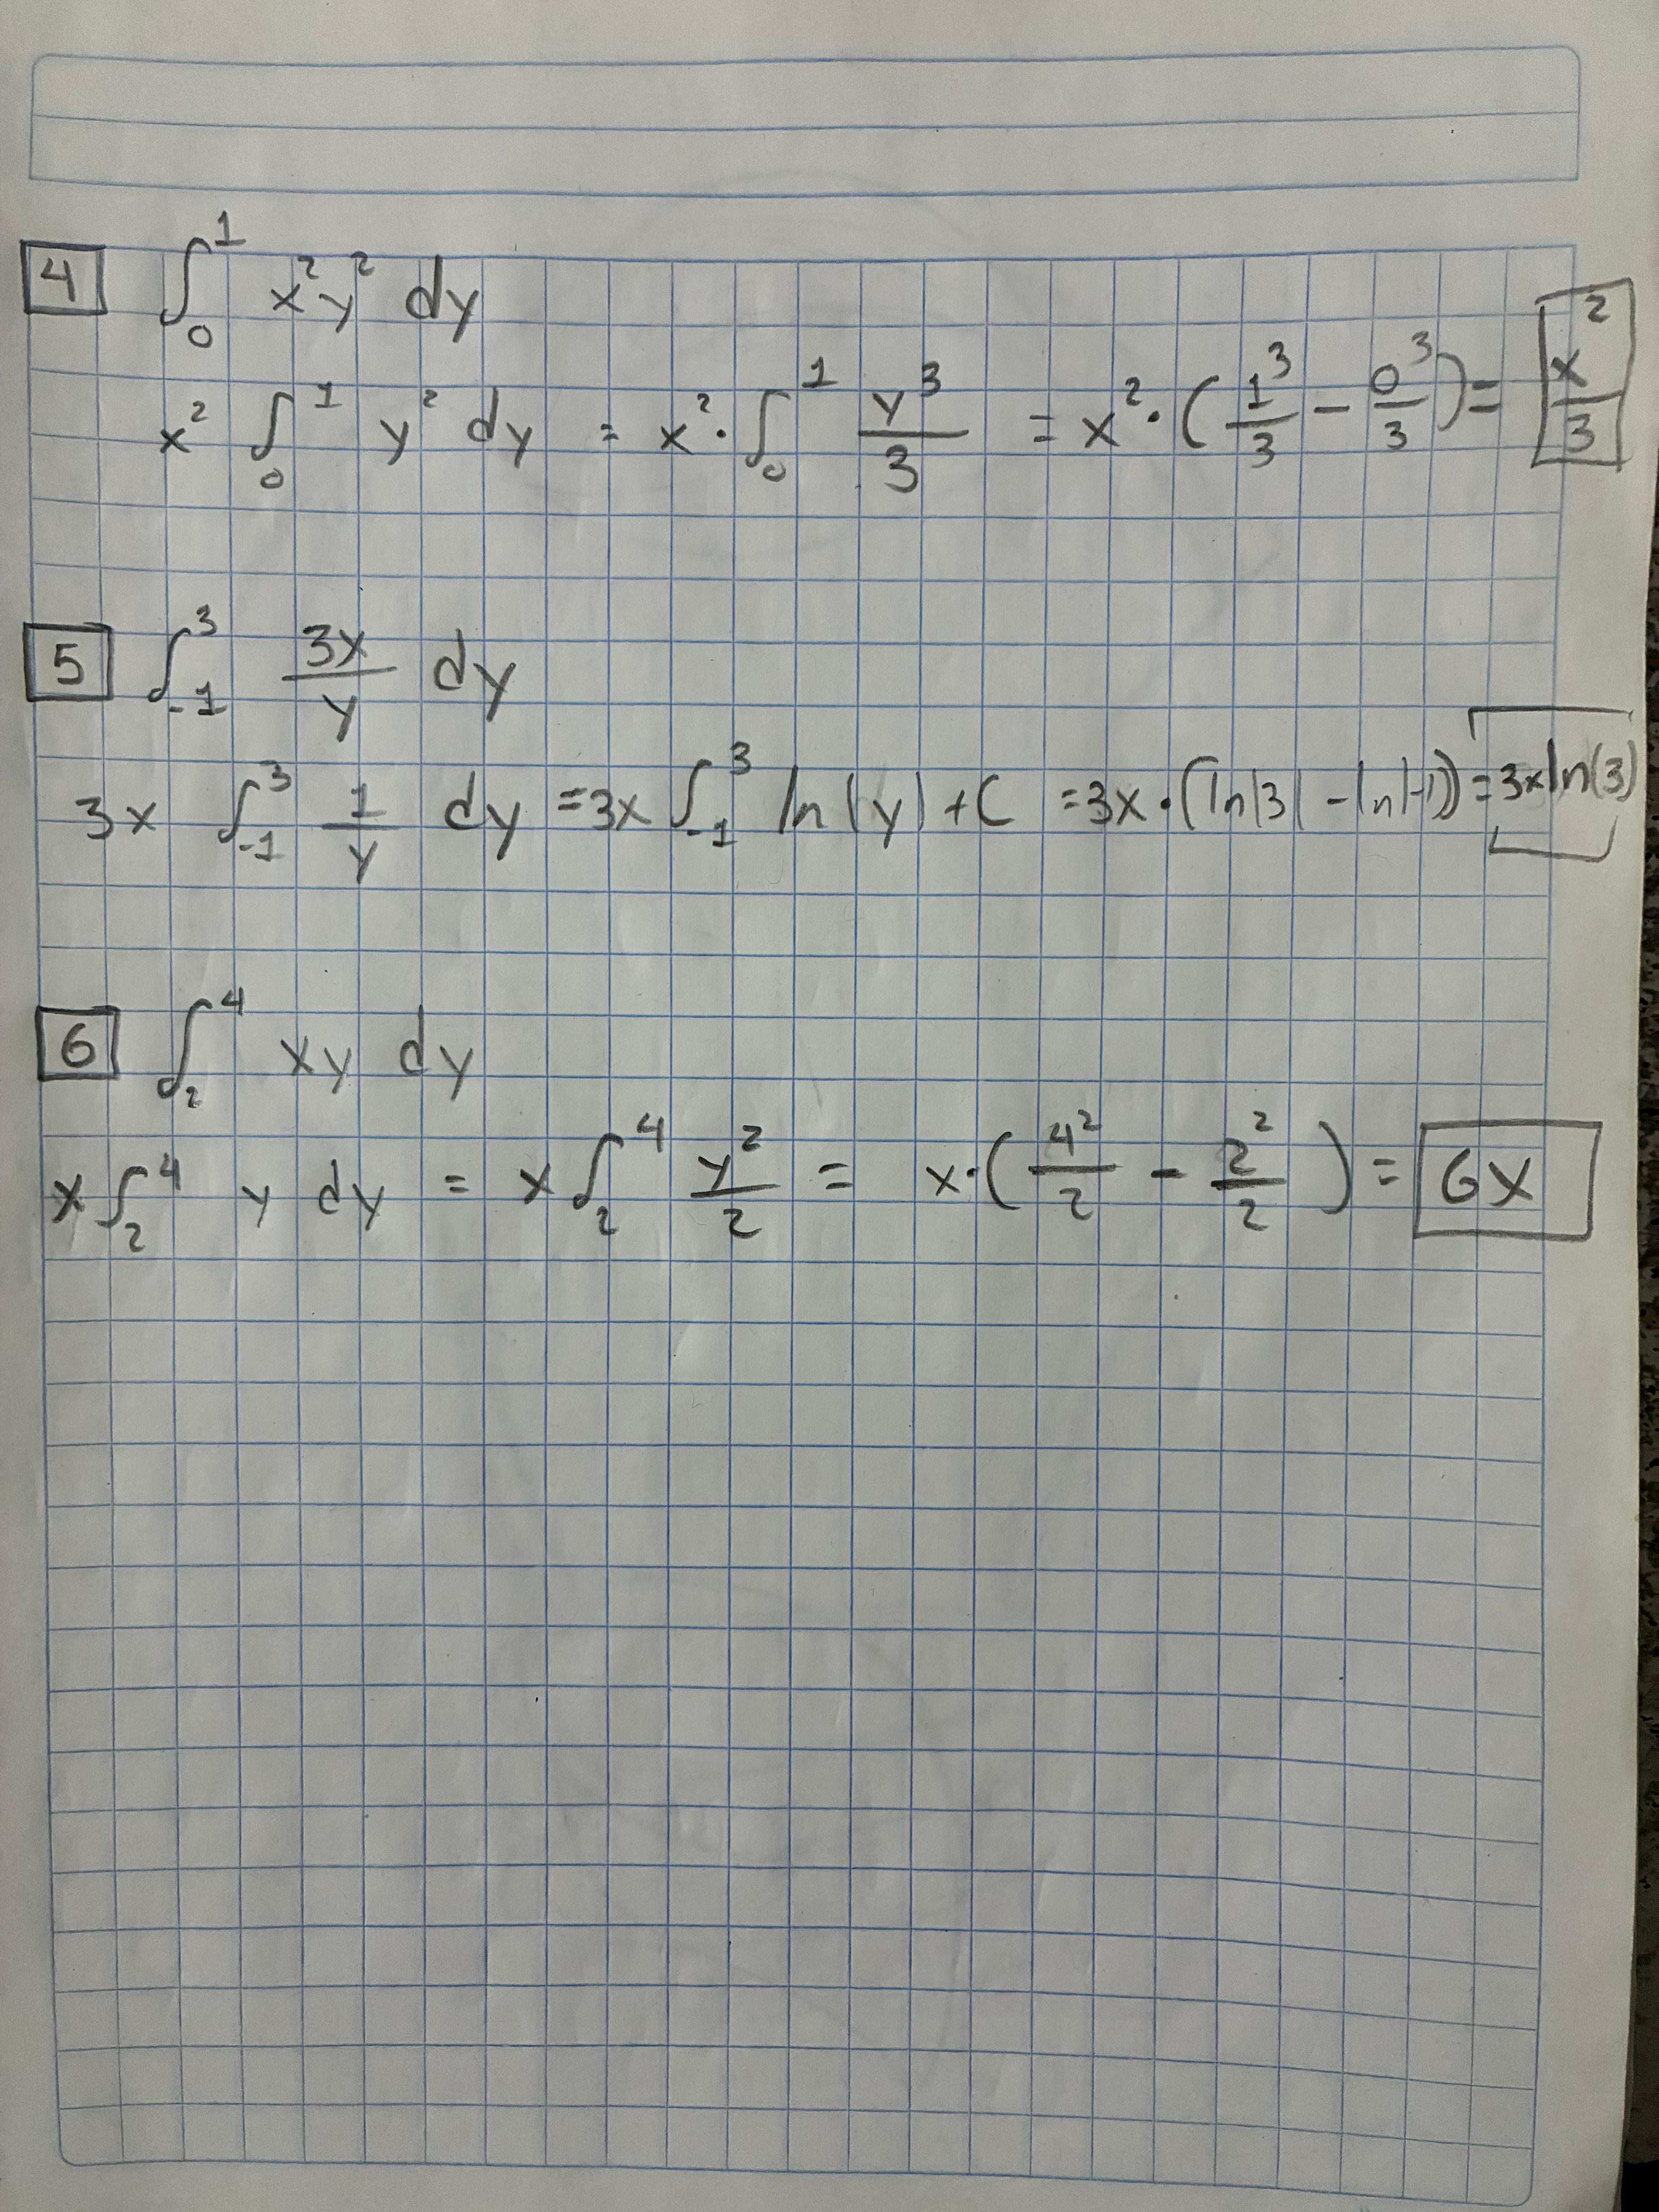 4 ∫₀¹ x²y² dy
x² ∫₀¹ y² dy = x² · ∫₀¹ y³/3 = x² · (1³/3 − 0³/3) = x²/3
5 ∫₋₁³ 3x/y dy
3x ∫₋₁³ 1/y dy = 3x ∫₋₁³ ln|y| + C = 3x · (ln|3| − ln|-1|) = 3x ln(3)
6 ∫₂⁴ xy dy
x ∫₂⁴ y dy = x ∫₂⁴ y²/2 = x · (4²/2 − 2²/2) = 6x